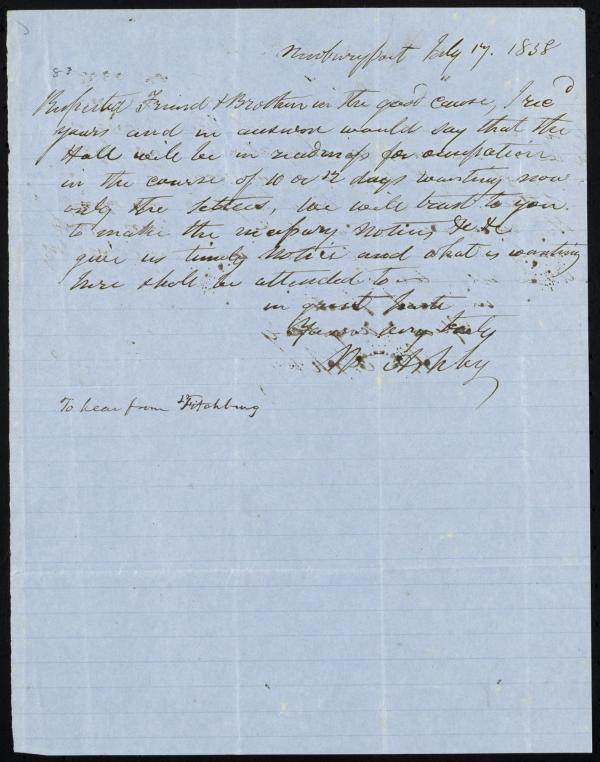 Newburyport July 17. 1858
83
Respected Friend & Brother in the good cause, I rec'd
yours and in answer would say that the
Hall will be in readiness for occupation
in the course of 10 or 12 days wanting now
only the settees, we will trust to you
to make the necessary notices, &c &c
give us timely notice and what is wanting
here shall be attended to
in great haste
Yours very truly
Wm Ashby
To hear from Fitchburg